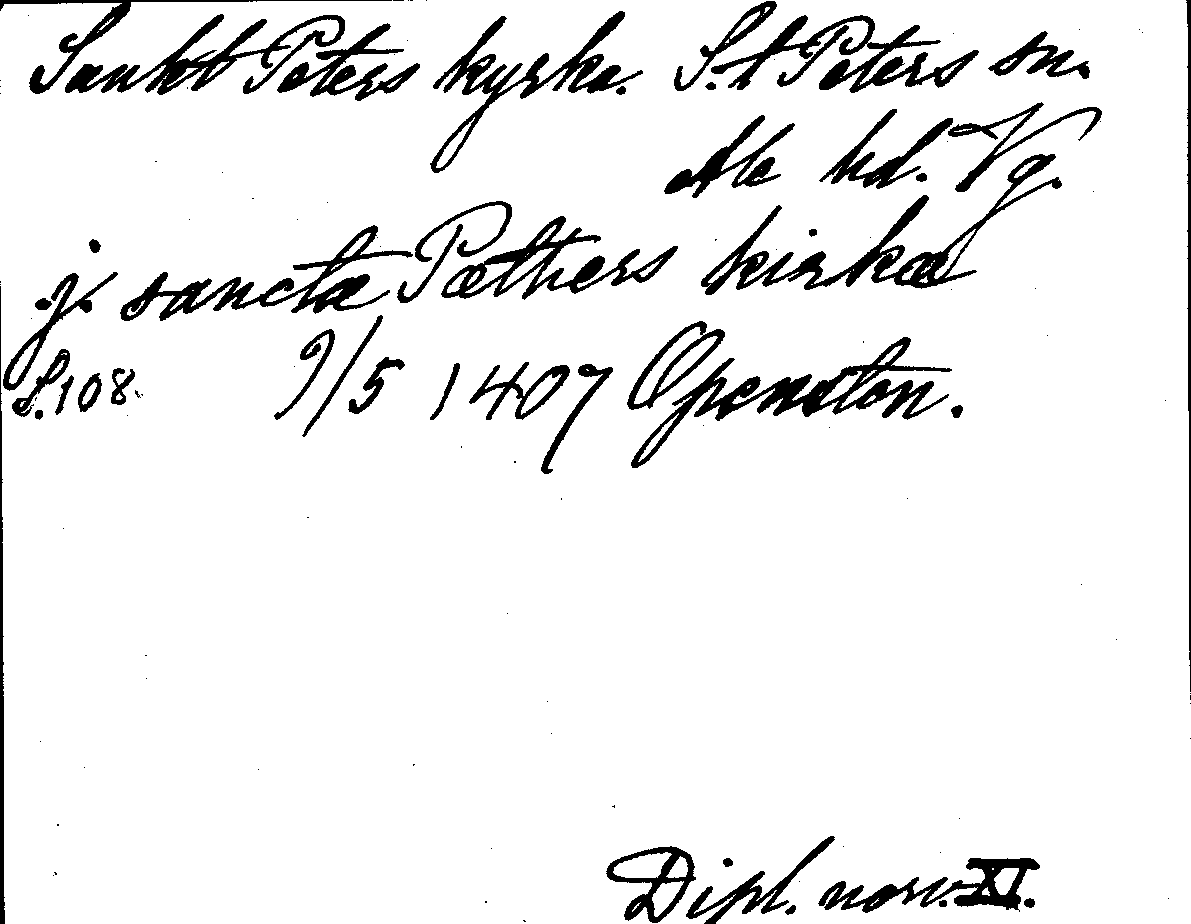 Sankt Peters kyrka. S:t Peters sn.
Ale hd. Vg.
j. sanctæ Pæthers kirkæ
S. 108. 9/5 1407 Openoton.
Dipl. norv. XI.